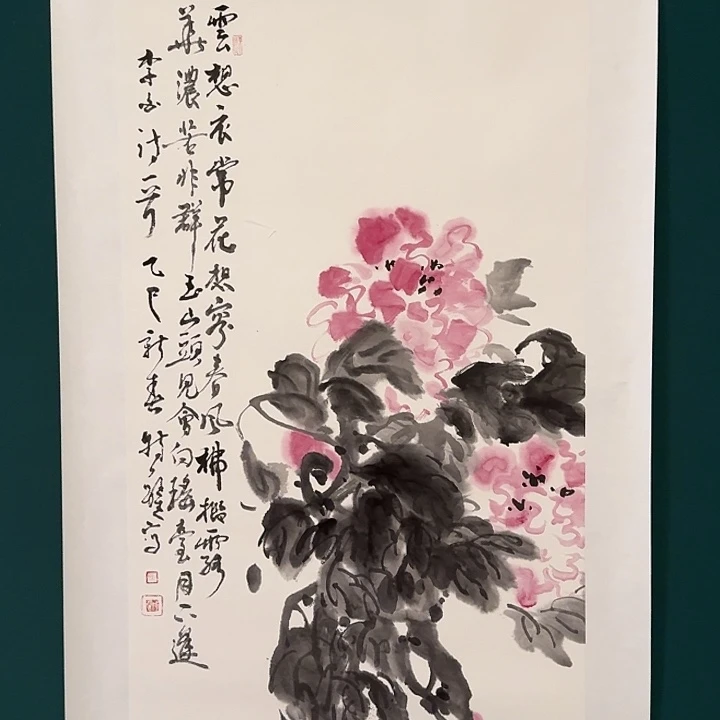 雲想衣常花想容春風拂檻露
華濃若非群玉山頭見會向瑤臺月下逢
李白詩一首 乙巳新春 寫